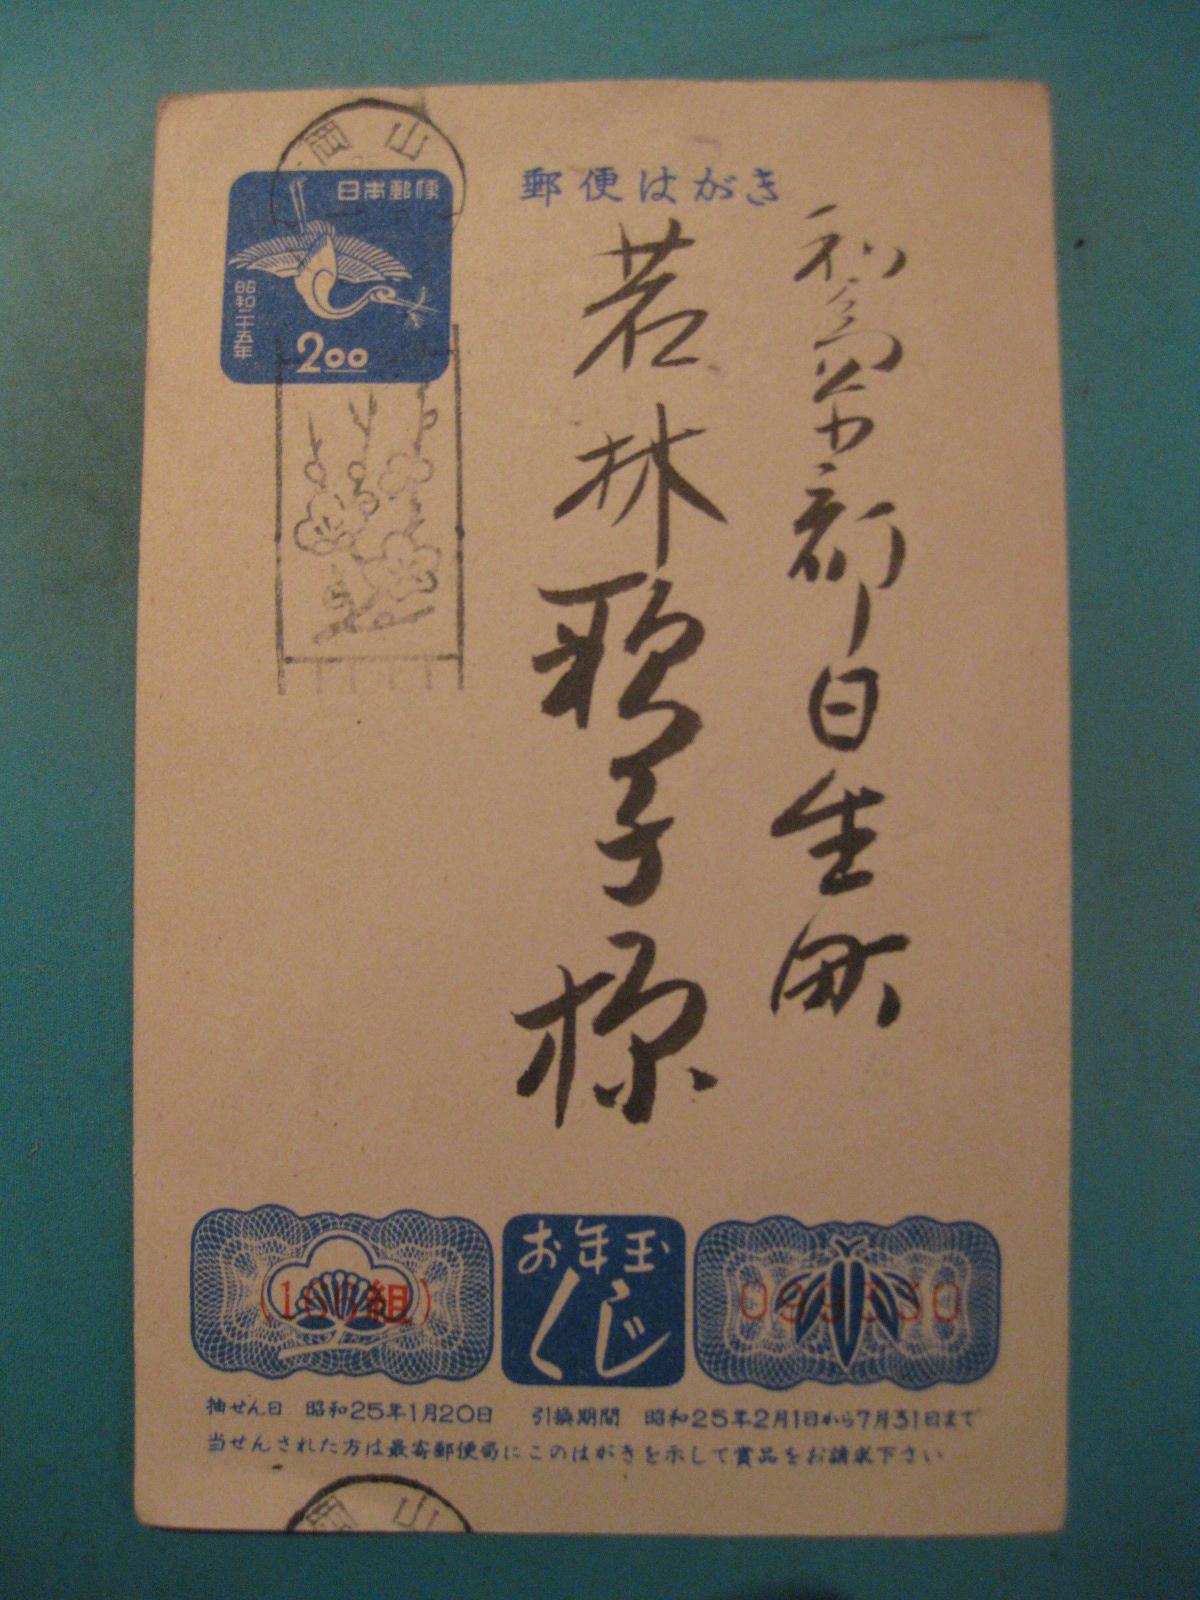 岡山
日本郵便
昭和二十五年
2.00
郵便はがき
和気郡日生町
若林歌子様
お年玉
くじ
抽せん日 昭和25年1月20日 引換期間 昭和25年2月1日から7月31日まで
当せんされた方は最寄郵便局にこのはがきを示して賞品をお請求下さい
岡山